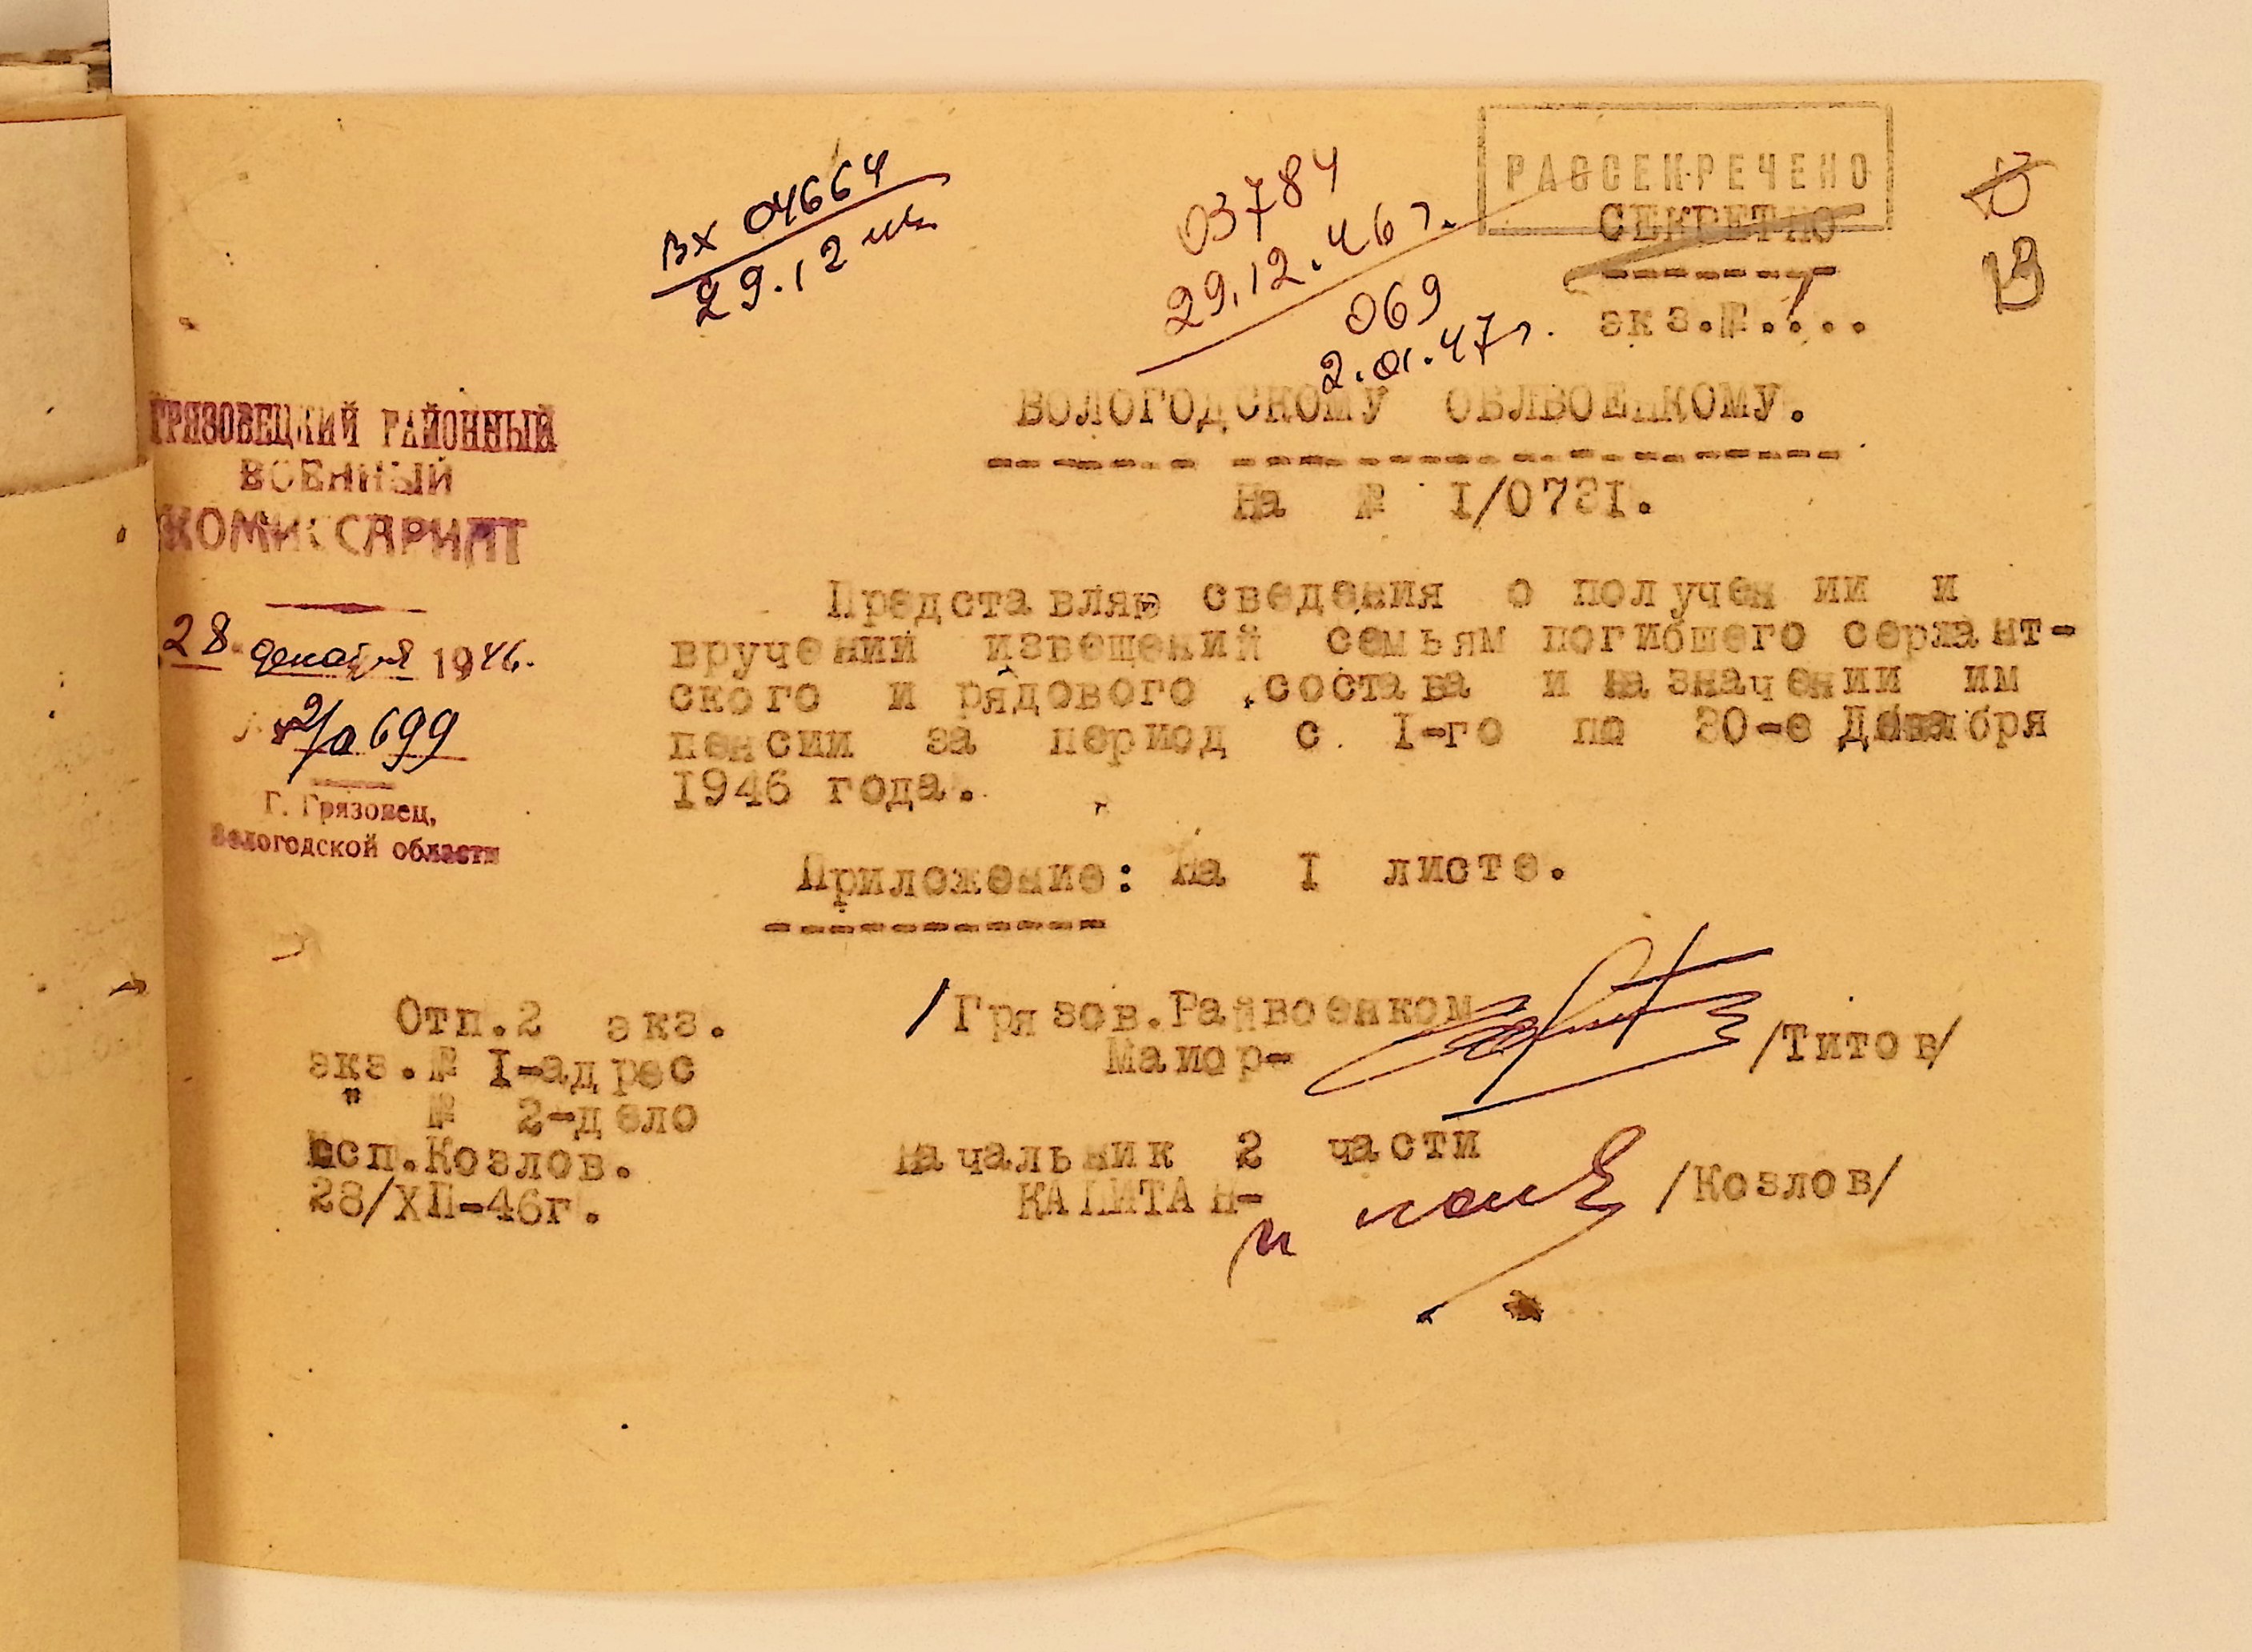 Вх 04664
29.12
03784
29.12.46 г.
069
2.01.47 г.
РАССЕКРЕЧЕНО
СЕКРЕТНО
экз.№.1...
13
ГРЯЗОВЕЦКИЙ РАЙОННЫЙ
ВОЕННЫЙ
КОМИССАРИАТ
28 декабря 1946.
2/0699
Г. Грязовец,
Вологодской области
ВОЛОГОДСКОМУ ОБЛВОЕНКОМУ.
На № I/0731.
Представляю сведения о получении и
вручении извещений семьям погибшего сержант-
ского и рядового состава и назначении им
пенсии за период с I-го по 30-е Декабря
1946 года.
Приложение: На I листе.
/Грязов.Райвоенком
Маиор- /Титов/
Начальник 2 части
КАПИТАН- /Козлов/
Отп.2 экз.
экз.№ I-адрес
" № 2-дело
исп.Козлов.
28/XII-46г.